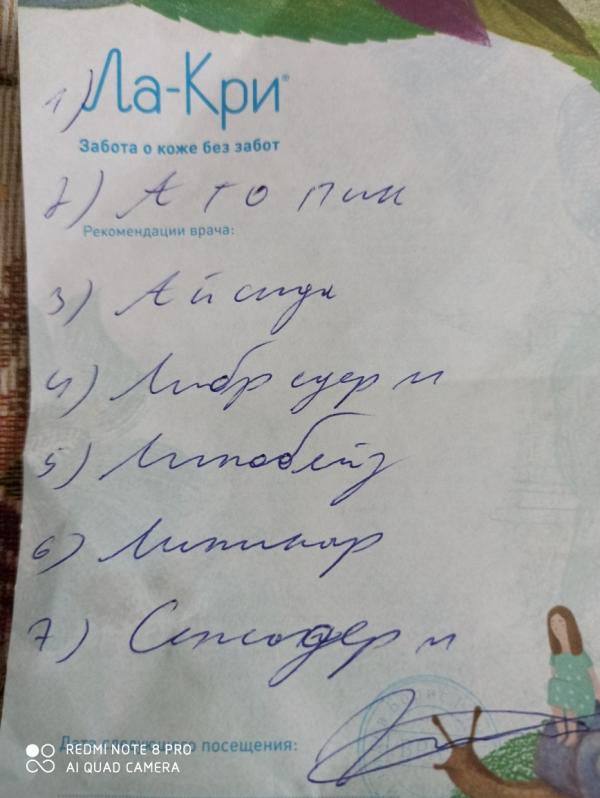 1) Ла-Кри®
Забота о коже без забот
2) Атопик
Рекомендации врача:
3) Айсида
4) Либредерм
5) Липобейз
6) Липикар
7) Сенсодерм
Дата следующего посещения:
REDMI NOTE 8 PRO
AI QUAD CAMERA